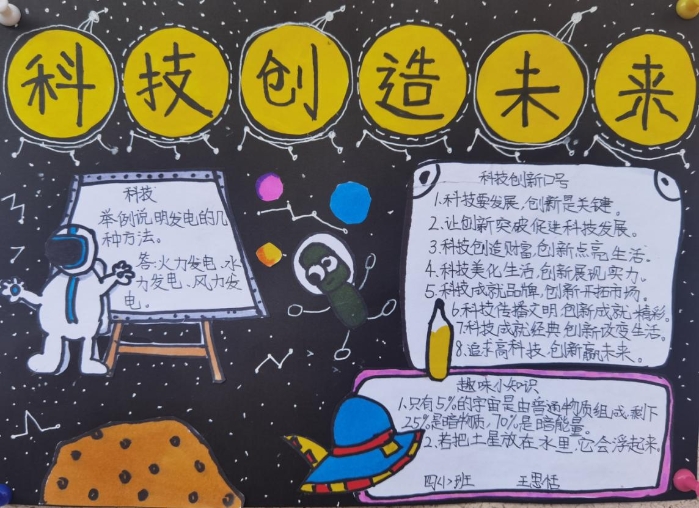 科技创造未来
科技
举例说明发电的几
种方法。
答:火力发电、水
力发电、风力发
电。
科技创新口号
1.科技要发展,创新是关键。
2.让创新突破促进科技发展。
3.科技创造财富,创新点亮生活。
4.科技美化生活,创新展现实力。
5.科技成就品牌,创新开拓市场。
6.科技传播文明,创新成就精彩。
7.科技成就经典,创新改变生活。
8.追求高科技,创新赢未来。
趣味小知识
1.只有5%的宇宙是由普通物质组成,剩下
25%是暗物质,70%是暗能量。
2.若把土星放在水里,它会浮起来。
四(1)班 王思恬